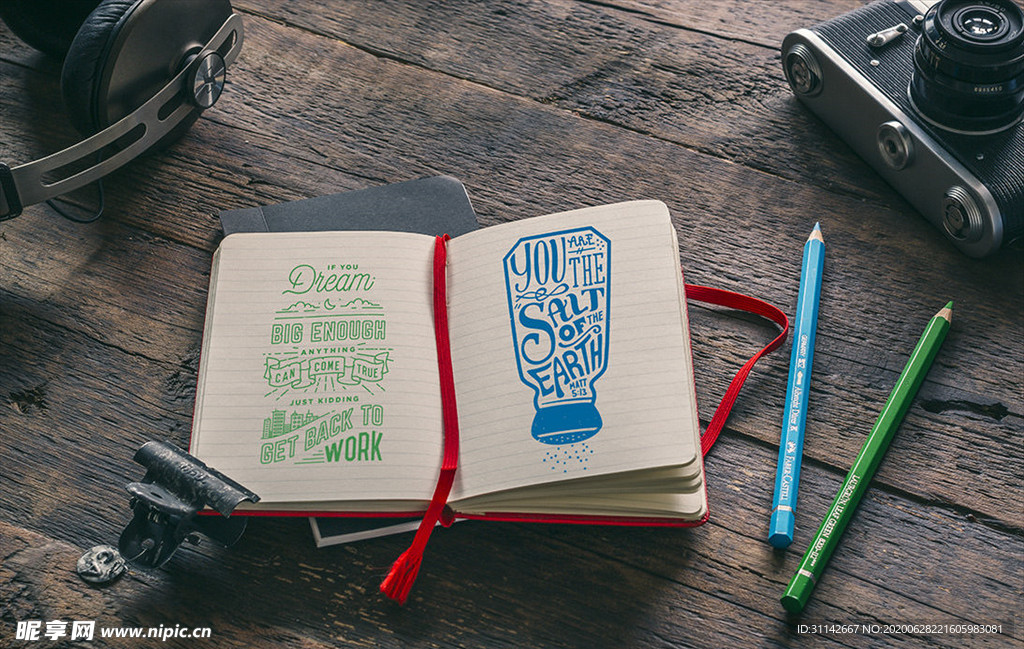 IF YOU
Dream
BIG ENOUGH
ANYTHING
CAN COME TRUE
JUST KIDDING
GET BACK TO
WORK
YOU ARE
THE
SALT
OF THE
EARTH
MATT
5:13
FABER-CASTELL
昵享网 www.nipic.cn
ID:31142667 NO:20200628221605983081